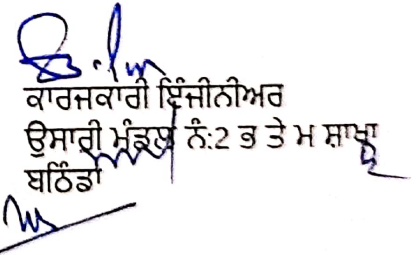 ਕਾਰਜਕਾਰੀ ਇੰਜੀਨੀਅਰ
ਉਸਾਰੀ ਮੰਡਲ ਨੰ:2 ਭ ਤੇ ਮ ਸ਼ਾਖਾ
ਬਠਿੰਡਾ